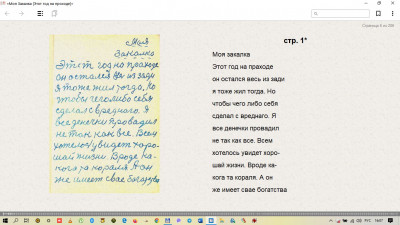 «Моя Закалка (Этот год на проходе)»
Страница 4 из 206
Моя
Закалка
Этот год на проходе
он остался весь из зади
я тоже жил тогда. Но
чтобы чего либо себя
сделал с вреднаго. Я
все денечки провадил
не так как все. Всем
хотелось увидет хоро-
шай жизни. Вроде ка-
кога та кораля. А он
же имеет свае богатства
стр. 1*
Моя закалка
Этот год на праходе
он остался весь из зади
я тоже жил тогда. Но
чтобы чего либо себя
сделал с вреднаго. Я
все денечки провадил
не так как все. Всем
хотелось увидет хоро-
шай жизни. Вроде ка-
кога та кораля. А он
же имеет свае богатства
РУС 14:07